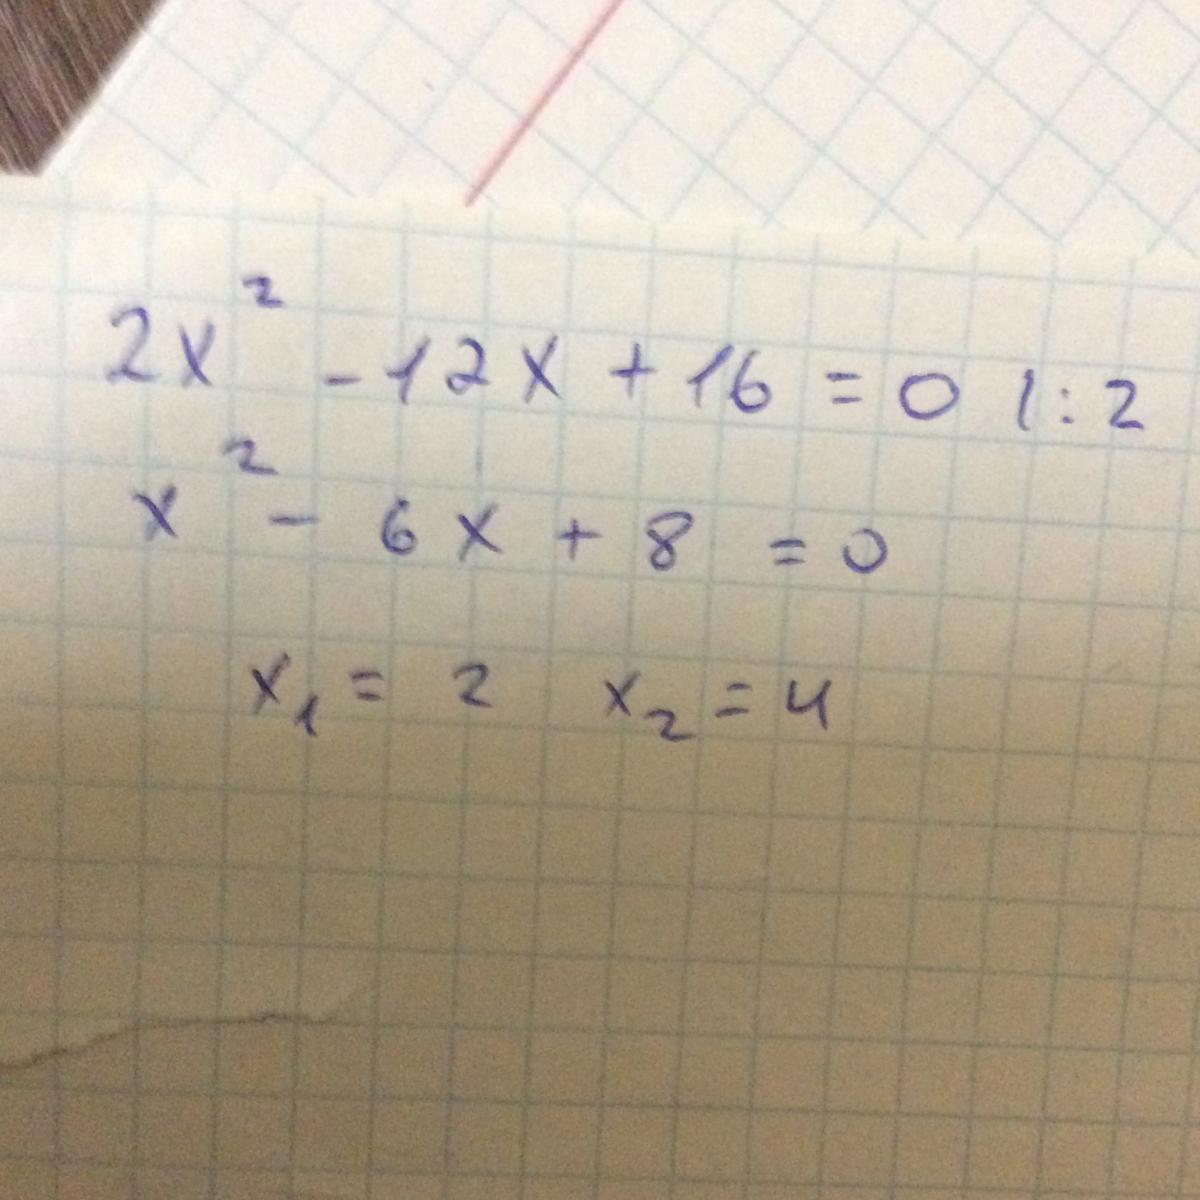 2x² - 12x + 16 = 0 |:2
x² - 6x + 8 = 0
x₁ = 2 x₂ = 4